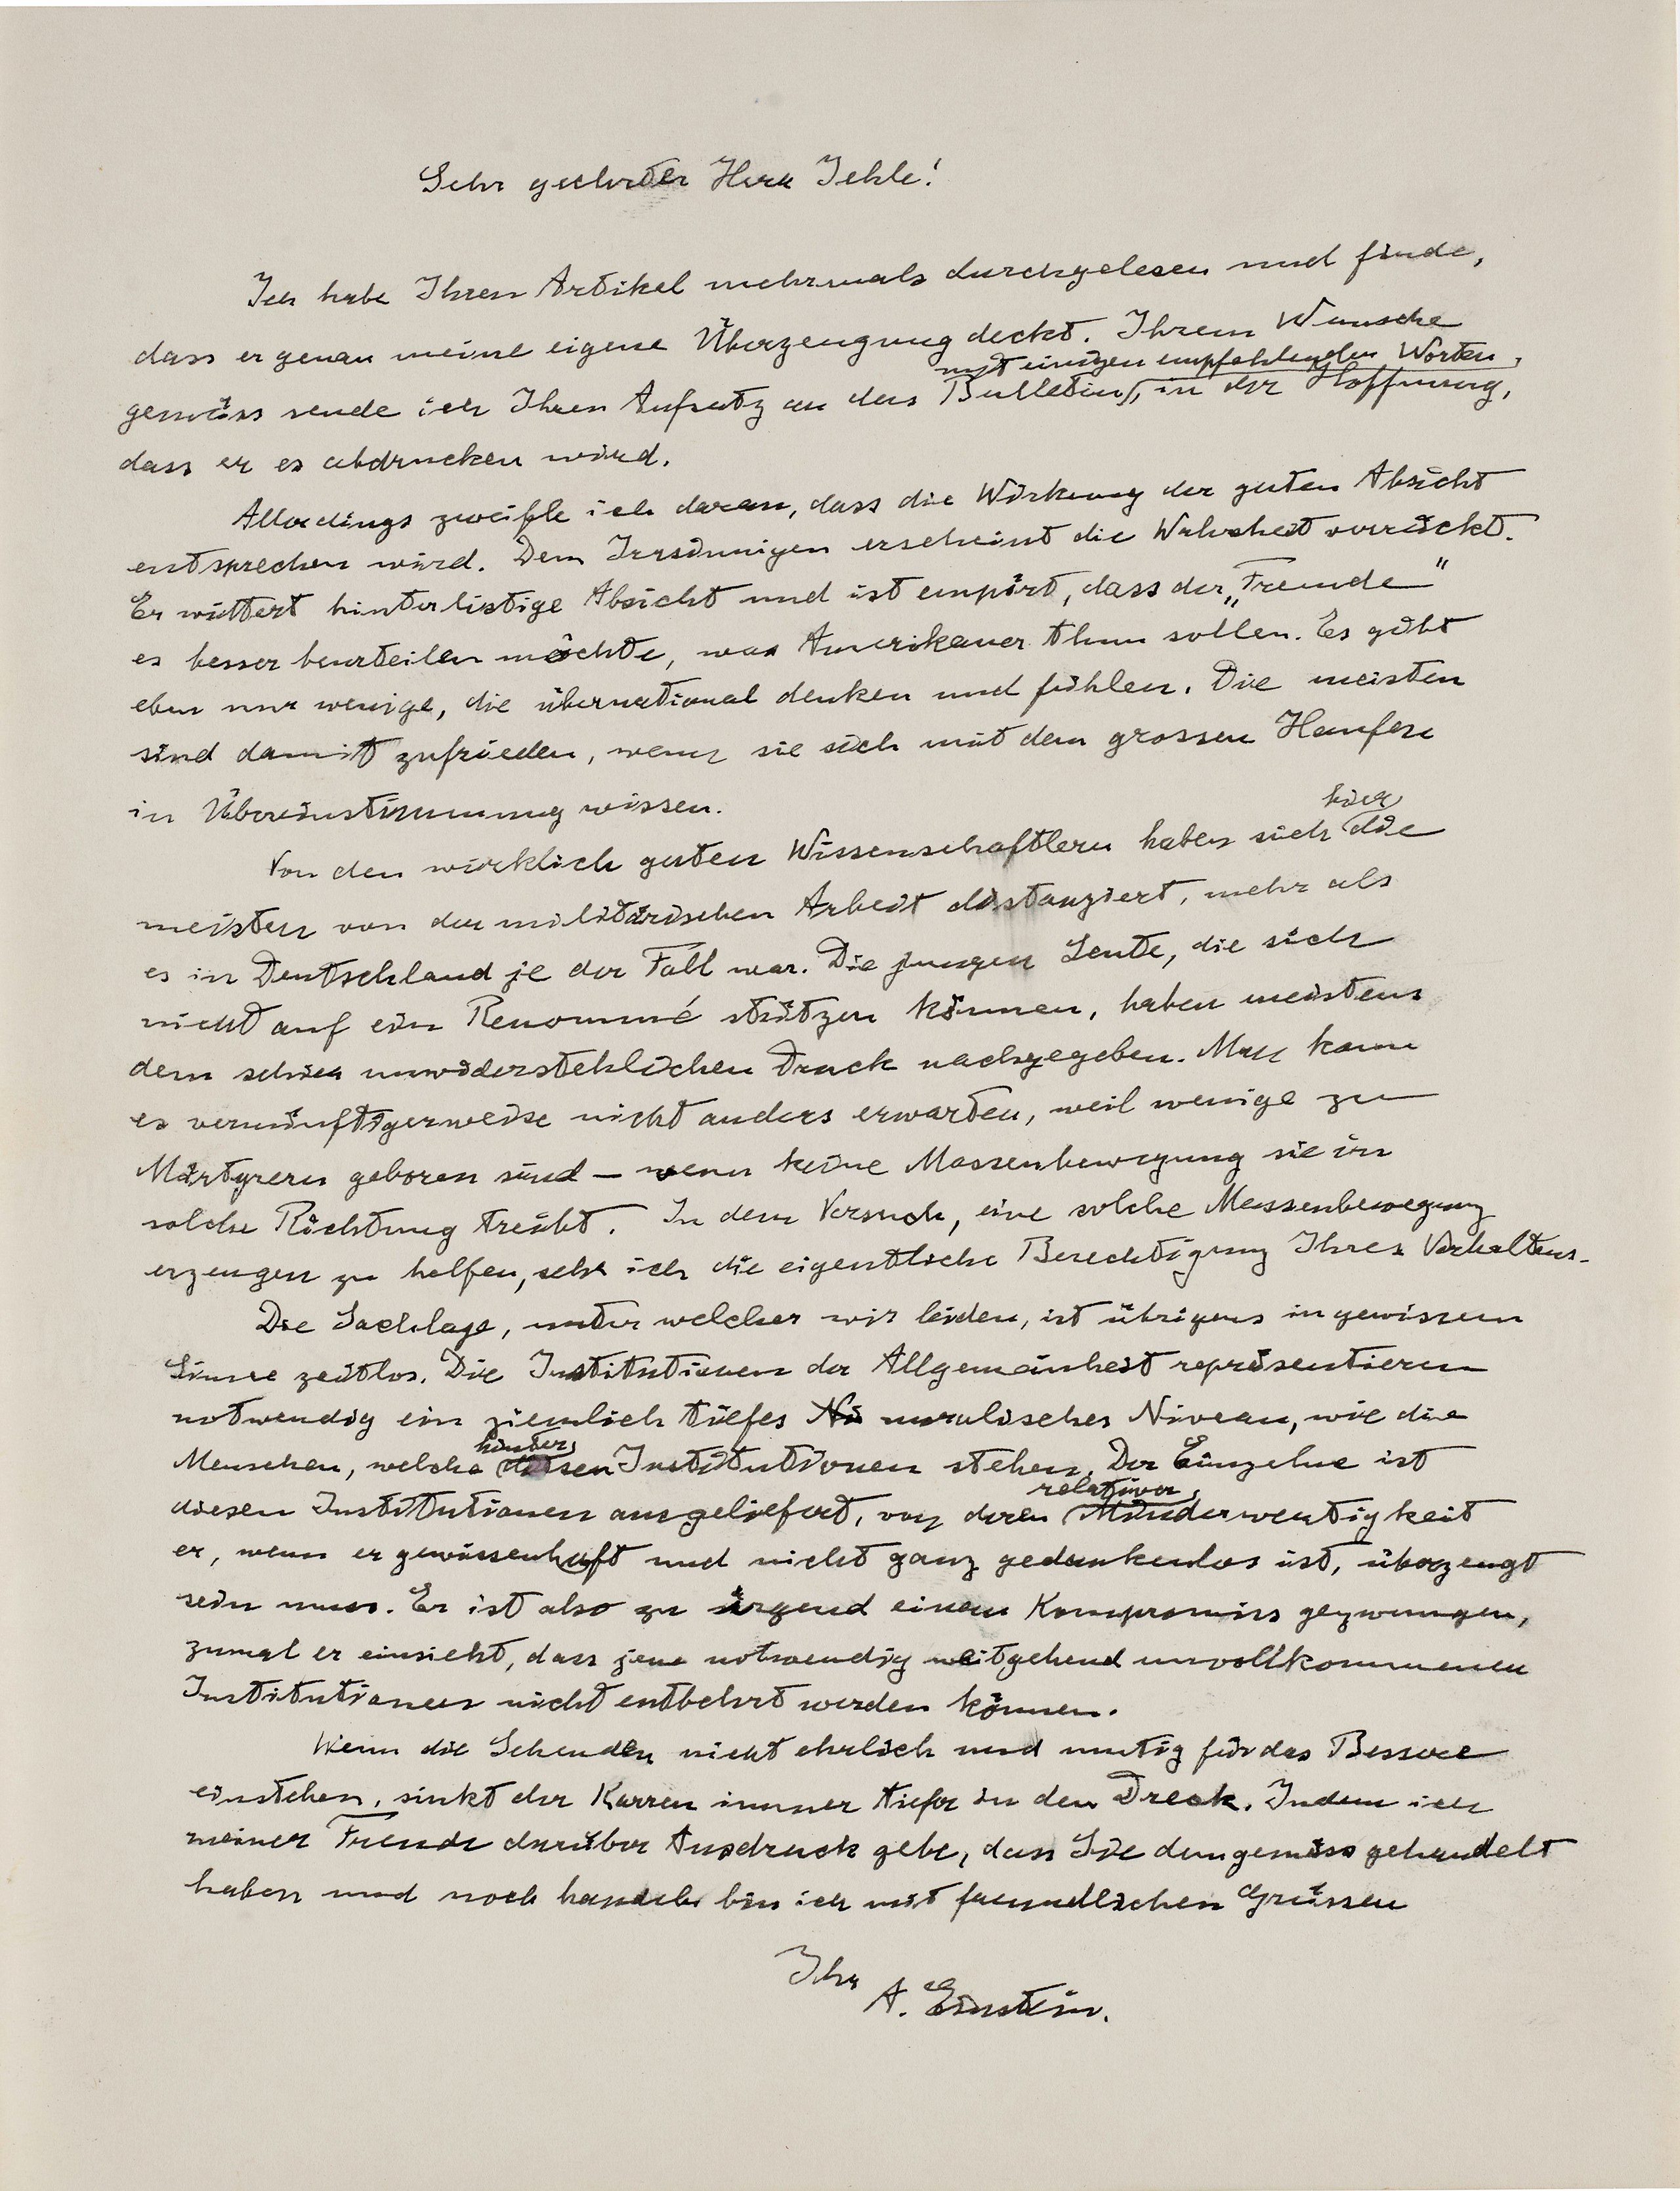 Sehr geehrter Herr Jehle!
Ich habe Ihren Artikel mehrmals durchgelesen und finde,
dass er genau meine eigene Überzeugung deckt. Ihrem Wunsche
mit einigen empfehlenden Worten,
gemäss sende ich Ihren Aufsatz an das Bulletin, in der Hoffnung,
dass er es abdrucken wird.
Allerdings zweifle ich daran, dass die Wirkung der guten Absicht
entsprechen wird. Dem Irrsinnigen erscheint die Wahrheit verrückt.
Er wittert hinterlistige Absicht und ist empört, dass der „Fremde"
es besser beurteilen möchte, was Amerikaner thun sollen. Es gibt
eben nur wenige, die übernational denken und fühlen. Die meisten
sind damit zufrieden, wenn sie sich mit dem grossen Haufen
in Übereinstimmung wissen.
hier
Von den wirklich guten Wissenschaftlern haben sich die
meisten von der militärischen Arbeit distanziert, mehr als
es in Deutschland je der Fall war. Die jungen Leute, die sich
nicht auf ein Renommé stützen können, haben meistens
dem schier unwiderstehlichen Druck nachgegeben. Man kann
es vernünftigerweise nicht anders erwarten, weil wenige zu
Märtyrern geboren sind – wenn keine Massenbewegung sie in
solche Richtung treibt. In dem Versuch, eine solche Massenbewegung
erzeugen zu helfen, sehe ich die eigentliche Berechtigung Ihres Verhaltens.
Die Sachlage, unter welcher wir leiden, ist übrigens in gewissem
Sinne zeitlos. Die Institutionen der Allgemeinheit repräsentieren
notwendig ein ziemlich tiefes Ni moralisches Niveau, wie die
hinter
Menschen, welche diesen Institutionen stehen. Der Einzelne ist
relativer
diesen Institutionen ausgeliefert, von deren Minderwertigkeit
er, wenn er gewissenhaft und nicht ganz gedankenlos ist, überzeugt
sein muss. Er ist also zu irgend einem Kompromiss gezwungen,
zumal er einsieht, dass jene notwendig weitgehend unvollkommenen
Institutionen nicht entbehrt werden können.
Wenn die Sehenden nicht ehrlich und mutig für das Bessere
einstehen, sinkt der Karren immer tiefer in den Dreck. Indem ich
meiner Freude darüber Ausdruck gebe, dass Sie demgemäss gehandelt
haben und noch handeln bin ich mit freundlichen Grüssen
Ihr
A. Einstein.